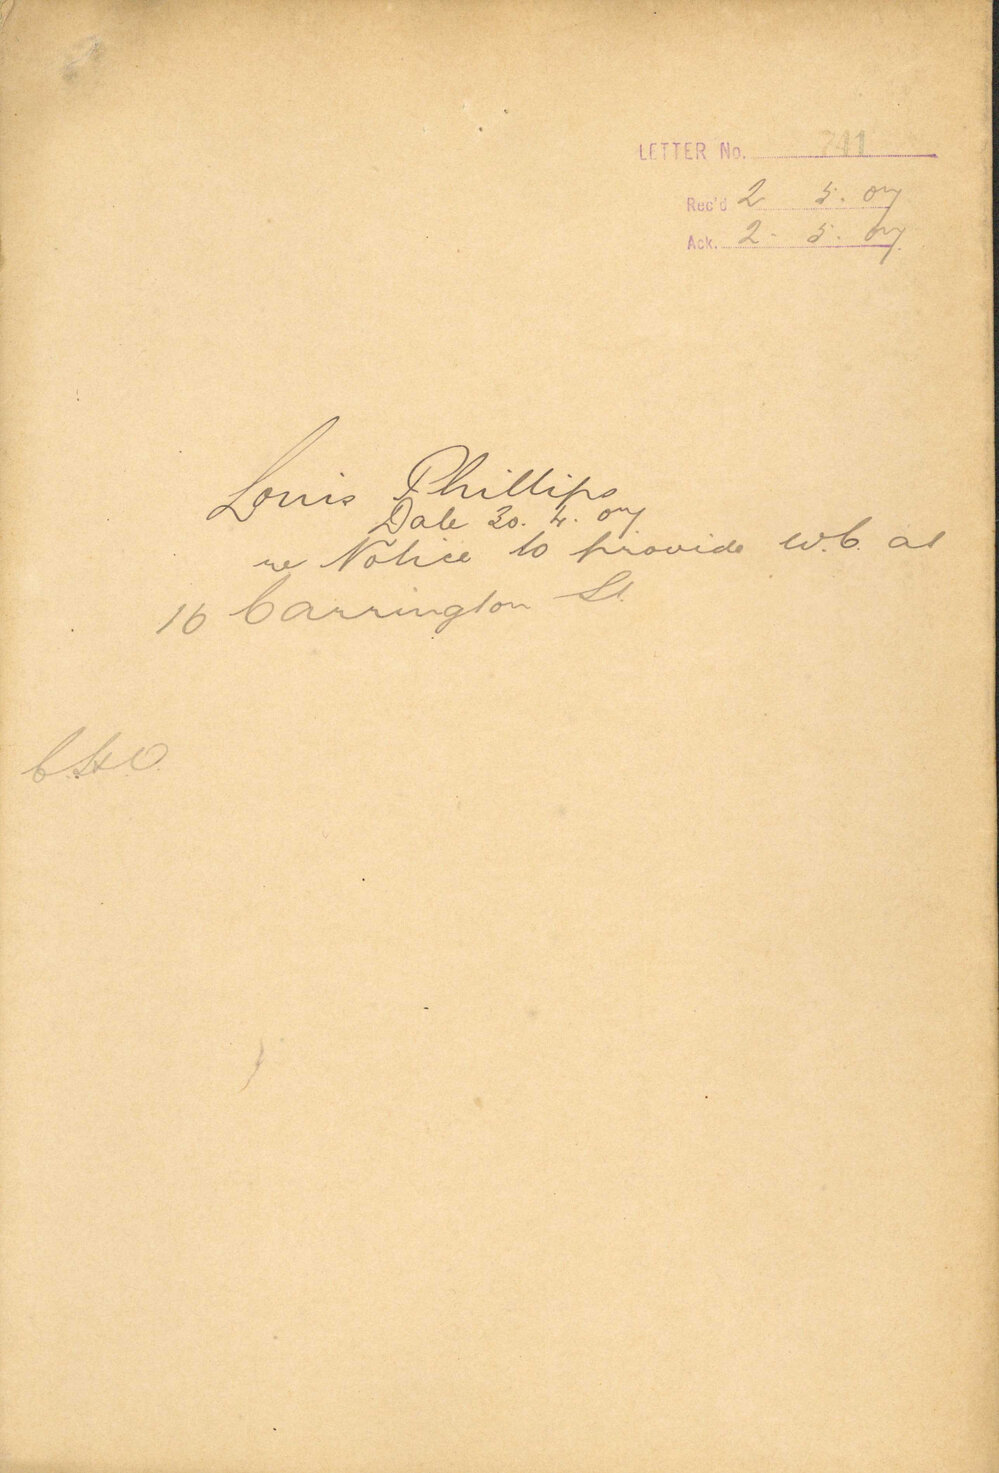 LETTER No. 741
Rec'd 2 5. 07
Ack. 2. 5. 07
Louis Phillips
Date 30. 4. 07
re Notice to provide W.C. at
16 Carrington St.
C.H.O.